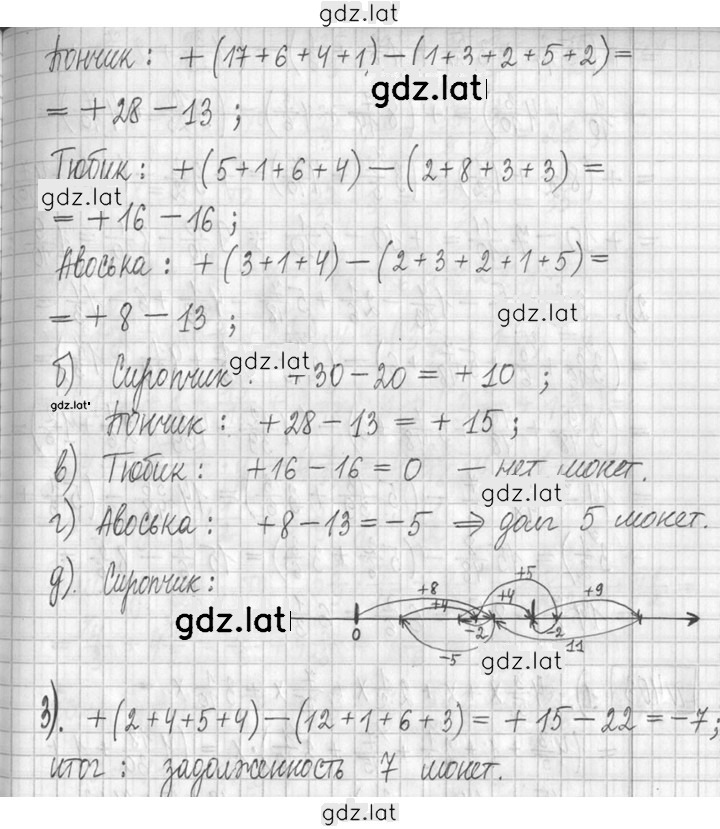 gdz.lat
Пончик: +(17+6+4+1)-(1+3+2+5+2)=
gdz.lat
= +28-13 ;
Тюбик: +(5+1+6+4)-(2+8+3+3) =
gdz.lat
= +16-16 ;
Авоська: +(3+1+4)-(2+3+2+1+5)=
= +8-13 ;
gdz.lat
б) Сиропчик: +30-20 = +10 ;
gdz.lat
gdz.lat
Пончик: +28-13 = +15 ;
в) Тюбик: +16-16 = 0 — нет монет.
gdz.lat
г) Авоська: +8-13=-5 ⇒ долг 5 монет.
д). Сиропчик:
+8 +4 +5 +4 +9
gdz.lat
0 -2 -2
-5 11
gdz.lat
3). +(2+4+5+4)-(12+1+6+3) = +15-22 = -7;
итог: задолженность 7 монет.
gdz.lat